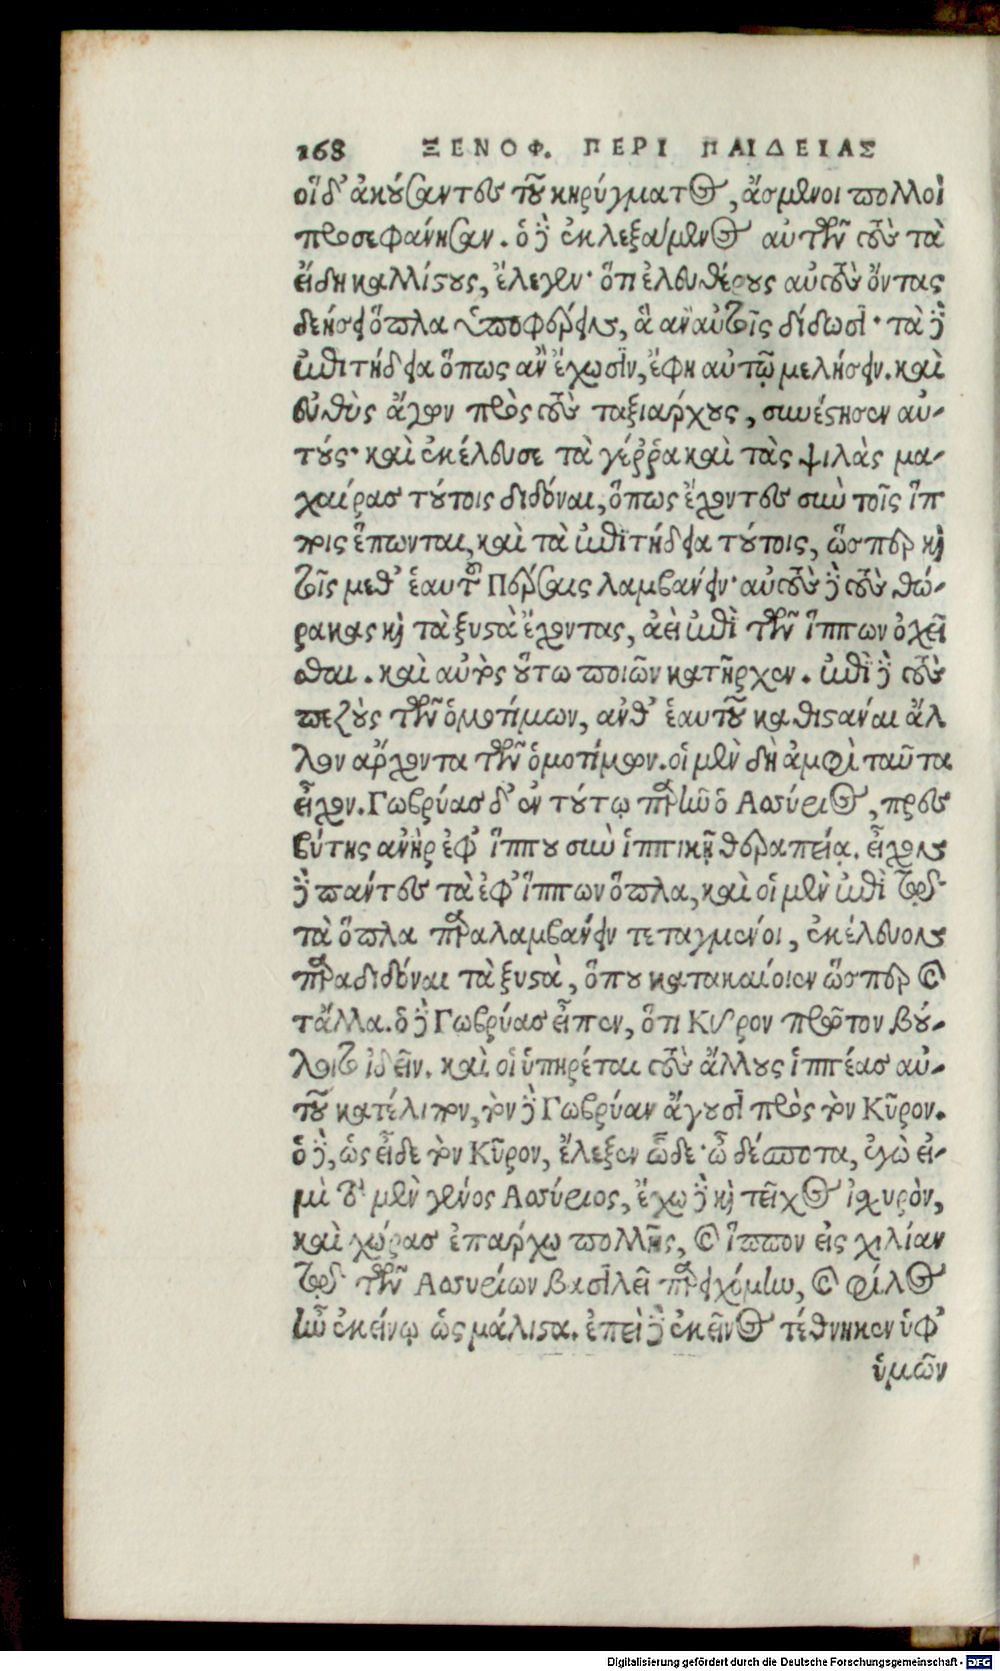 168 ΞΕΝΟΦ. ΠΕΡΙ ΠΑΙΔΕΙΑΣ
οἵ δ' ἀκούσαντες τοῦ κηρύγματος, ἄσμενοι πολλοὶ
προσεφάνησαν. ὁ δὲ ἐκλεξάμενος αὐτῶν τοὺς τὰ
εἴδη καλλίστους, ἔλεγεν· ὅτι ἐλευθέρους αὐτοὺς ὄντας
δεήσει ὅπλα ὑποφέρειν, ἃ ἂν αὐτοῖς δίδωσι· τὰ δὲ
ἐπιτήδεια ὅπως ἂν ἔχωσιν, ἔφη αὐτῷ μελήσειν. καὶ
εὐθὺς ἄγων πρὸς τοὺς ταξιάρχους, συνέστησεν αὐ-
τούς· καὶ ἐκέλευσε τὰ γέῤῥα καὶ τὰς ψιλὰς μα-
χαίρας τούτοις διδόναι, ὅπως ἔχοντες σὺν τοῖς ἵπ
ποις ἕπωνται, καὶ τὰ ἐπιτήδεια τούτοις, ὥσπερ καὶ
τοῖς μεθ' ἑαυτοῦ Πέρσαις λαμβάνειν· αὐτοὺς δὲ τοὺς θώ-
ρακας καὶ τὰ ξυστὰ ἔχοντας, ἀεὶ ἐπὶ τῶν ἵππων ὀχεῖ
σθαι. καὶ αὐτὸς οὕτω ποιῶν κατῆρχεν. ἐπὶ δὲ τοὺς
πεζοὺς τῶν ὁμοτίμων, ἀνθ' ἑαυτοῦ καθιστάναι ἄλ
λον ἄρχοντα τῶν ὁμοτίμων. οἱ μὲν δὴ ἀμφὶ ταῦτα
εἶχον. Γωβρύας δ' ἐν τούτῳ παρῆν ὁ Ἀσσύριος, πρεσ
βύτης ἀνὴρ ἐφ' ἵππου σὺν ἱππικῇ θεραπείᾳ. εἶχον
δὲ πάντες τὰ ἐφ' ἵππων ὅπλα, καὶ οἱ μὲν ἐπὶ τῷ
τὰ ὅπλα παραλαμβάνειν τεταγμένοι, ἐκέλευον
παραδιδόναι τὰ ξυστὰ, ὅπου κατακαίοιεν ὥσπερ καὶ
τἄλλα. ὁ δὲ Γωβρύας εἶπεν, ὅτι Κῦρον πρῶτον βού-
λοιτο ἰδεῖν. καὶ οἱ ὑπηρέται τοὺς ἄλλους ἱππέας αὐ-
τοῦ κατέλιπον, τὸν δὲ Γωβρύαν ἄγουσι πρὸς τὸν Κῦρον.
ὁ δὲ, ὡς εἶδε τὸν Κῦρον, ἔλεξεν ὧδε· ὦ δέσποτα, ἐγὼ εἰ-
μὶ τὸ μὲν γένος Ἀσσύριος, ἔχω δὲ καὶ τεῖχος ἰσχυρὸν,
καὶ χώρας ἐπάρχω πολλῆς, καὶ ἵππον εἰς χιλίαν
τῷ τῶν Ἀσσυρίων βασιλεῖ παρειχόμην, καὶ φίλος
ἦν ἐκείνῳ ὡς μάλιστα. ἐπεὶ δὲ ἐκεῖνος τέθνηκεν ὑφ'
ὑμῶν
Digitalisierung gefördert durch die Deutsche Forschungsgemeinschaft - DFG